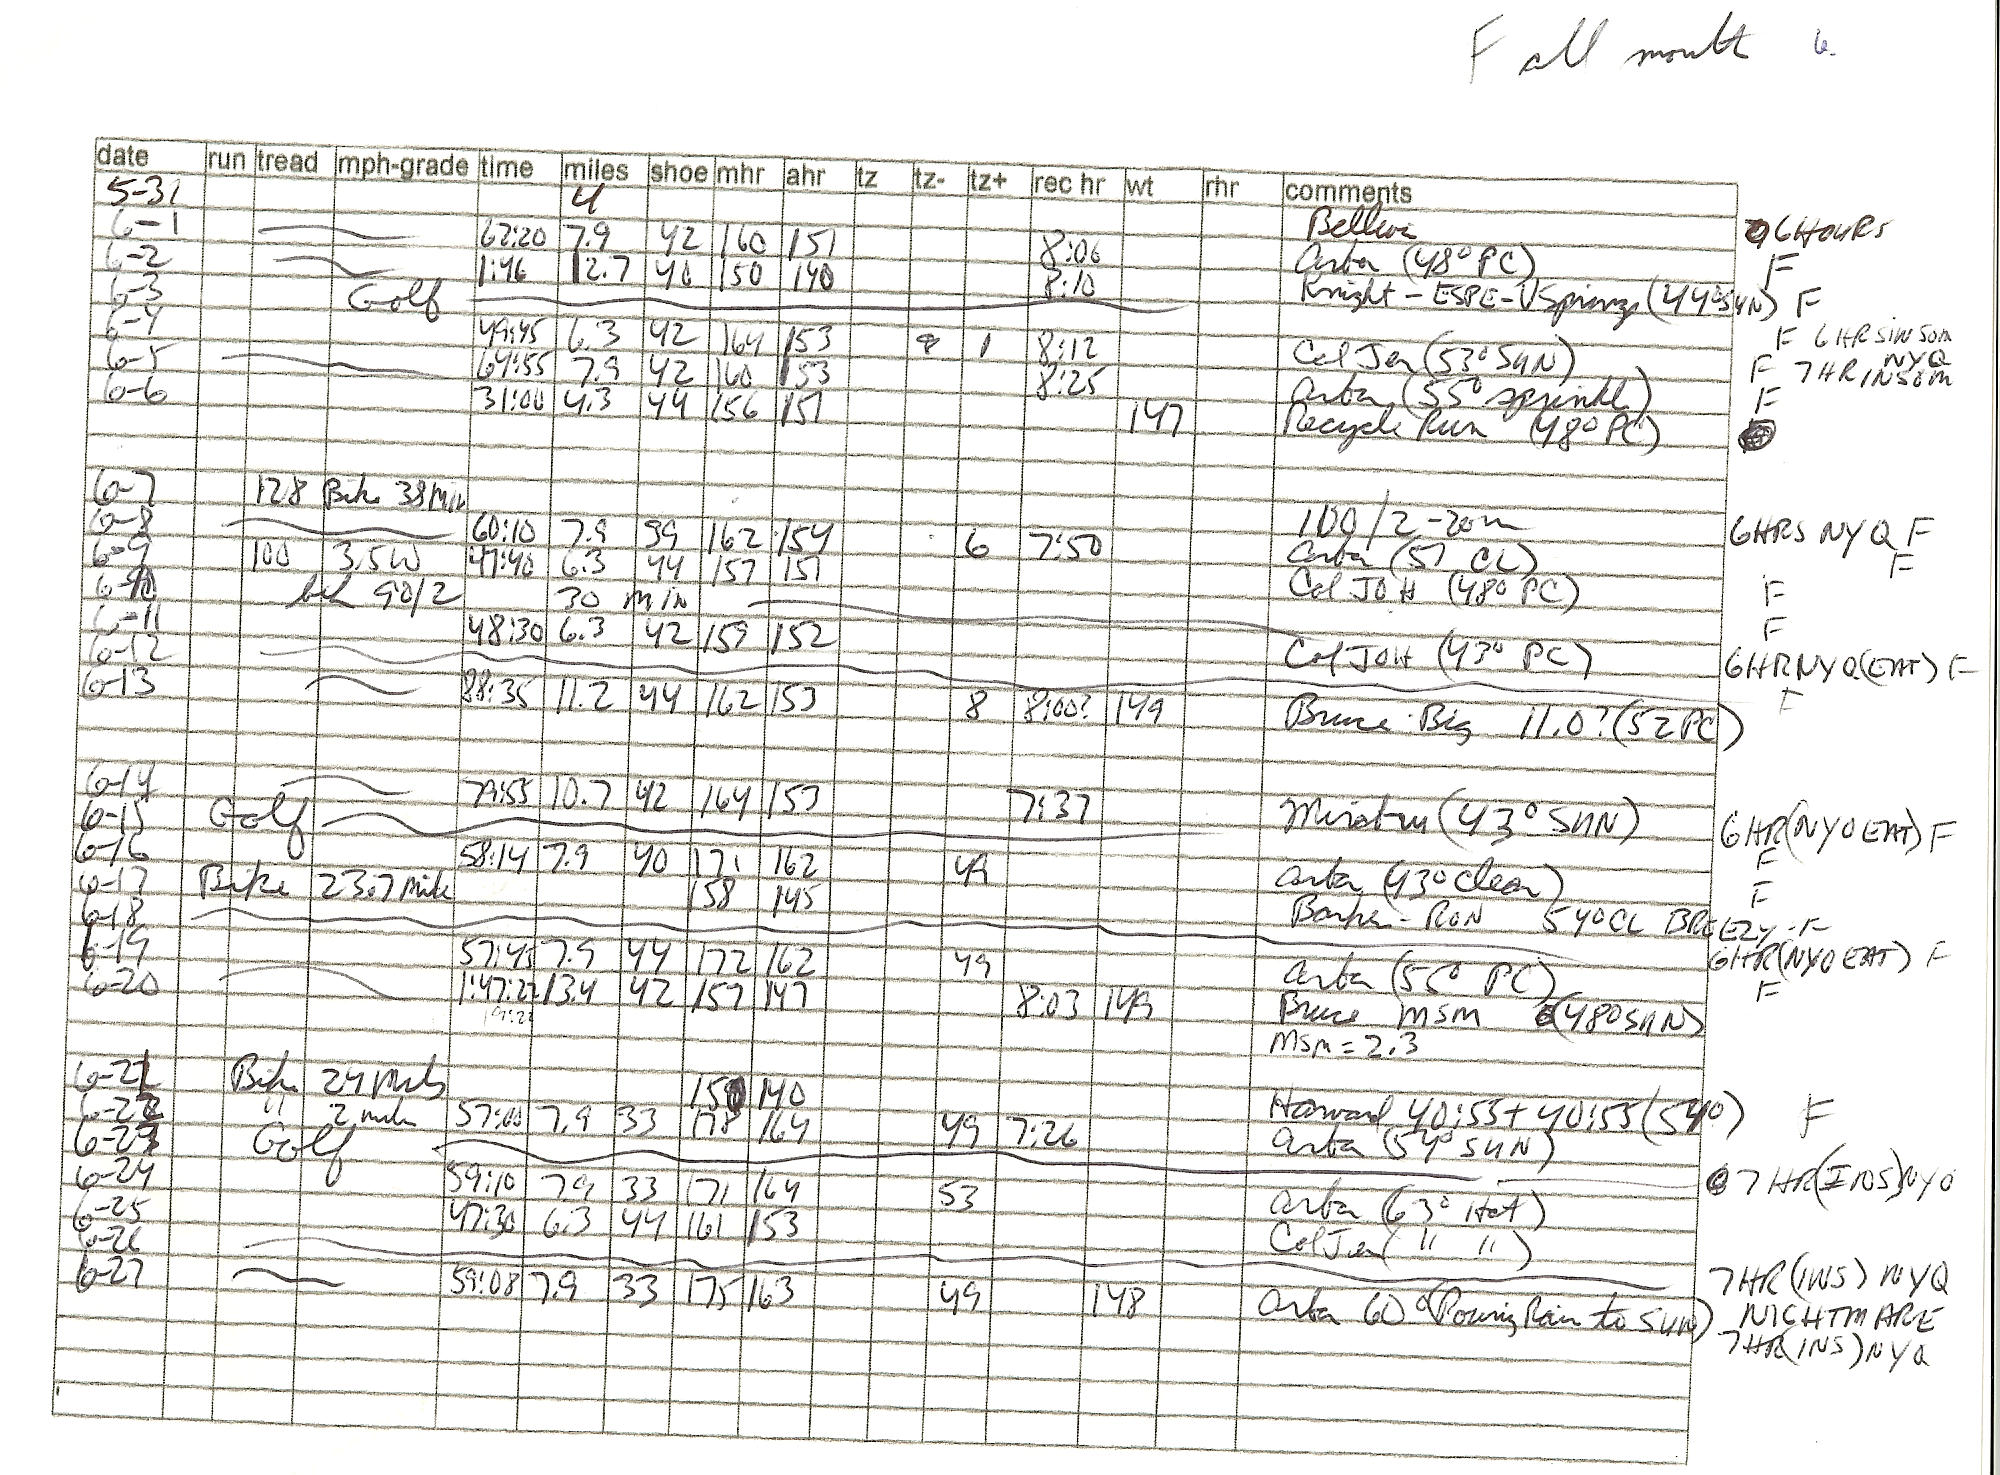 F all month 6.
date run tread mph-grade time miles shoe mhr ahr tz tz- tz+ rec hr wt rhr comments
5-31 4 6 HOURS
6-1 62:20 7.9 42 160 151 8:06 Arba (48° PC) F
6-2 1:46 12.7 40 150 140 8:10 Knight - ESPE - V Springs (44° SUN) F
6-3 Golf
6-4 49:45 6.3 42 164 153 8 1 8:12 Col Jen (53° SUN) F 6 HRS INSOM NYQ
6-5 64:55 7.9 42 160 153 8:25 Arba (55° sprinkle) F 7 HR INSOM
6-6 31:00 4.3 44 156 151 147 Recycle Run (48° PC) F
6-7 128 Bike 38 min 100/2 - 20m
6-8 60:10 7.9 39 162 154 6 7:50 Arba (57 CL) 6 HRS NYQ F
6-9 100 3.5W 47:40 6.3 44 157 151 Col JOH (48° PC) F
6-10 bik 90/2 30 min F
6-11 48:30 6.3 42 159 152 Col JOH (43° PC) F
6-12 6 HR NYQ (EAT) F
6-13 88:35 11.2 44 162 153 8 8:00? 149 Bruce Big 11.0? (52 PC) F
6-14 79:55 10.7 42 164 153 7:37 (43° SUN)
6-15 Golf 6 HR (NYQ EAT) F
6-16 58:14 7.9 40 171 162 49 Arba (43° clear) F
6-17 Bike 23.7 mile 158 145 - RON 54° CL BREEZY F
6-18 6 HR (NYQ EAT) F
6-19 57:45 7.9 44 172 162 49 Arba (55° PC) F
6-20 1:47:27 13.4 42 157 147 8:03 149 Bruce MSM (48° SUN)
MSM = 2.3
6-21 Bike 24 miles 159 140 Harvard 40:55 + 40:55 (54°) F
6-22 " 2 mile 57:00 7.9 33 178 164 49 7:26 Arba (54° SUN)
6-23 Golf 7 HR (INS) NYQ
6-24 59:10 7.9 33 171 164 53 Arba (63° Hot)
6-25 47:30 6.3 44 161 153 Col Jen ( " " )
6-26 7 HR (INS) NYQ
6-27 59:08 7.9 33 175 163 49 148 Arba 60° (Pouring Rain to SUN) NIGHTMARE
7 HR (INS) NYQ